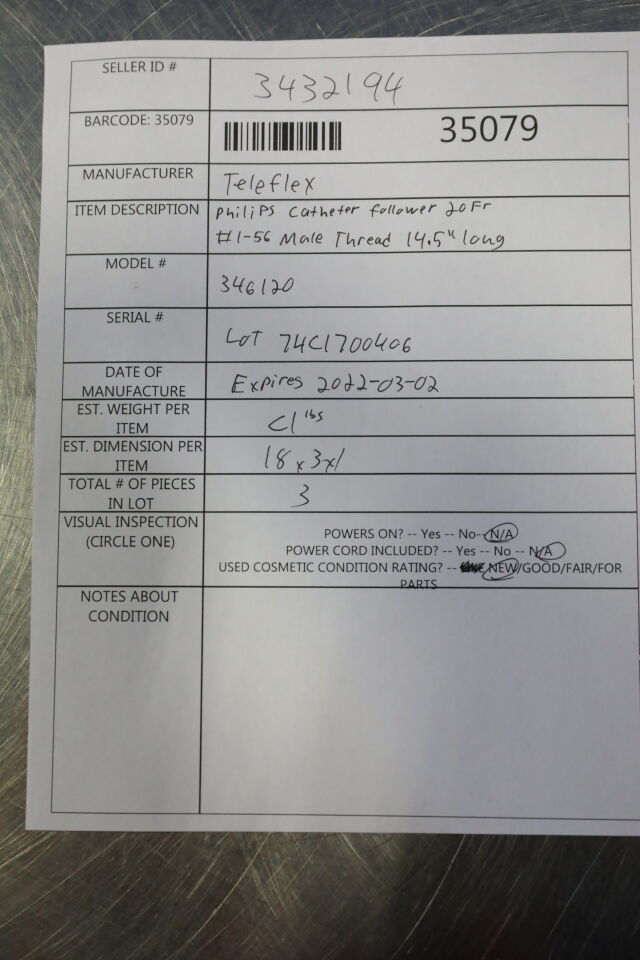 SELLER ID # 3432194
BARCODE: 35079 35079
MANUFACTURER Teleflex
ITEM DESCRIPTION Philips Catheter follower 20Fr
#1-56 Male Thread 14.5" long
MODEL # 346120
SERIAL # Lot 74C1700406
DATE OF
MANUFACTURE Expires 2022-03-02
EST. WEIGHT PER
ITEM <1 lbs
EST. DIMENSION PER
ITEM 18 x 3 x 1
TOTAL # OF PIECES
IN LOT 3
VISUAL INSPECTION
(CIRCLE ONE)
POWERS ON? -- Yes -- No-- N/A
POWER CORD INCLUDED? -- Yes -- No -- N/A
USED COSMETIC CONDITION RATING? -- NEW/GOOD/FAIR/FOR
PARTS
NOTES ABOUT
CONDITION